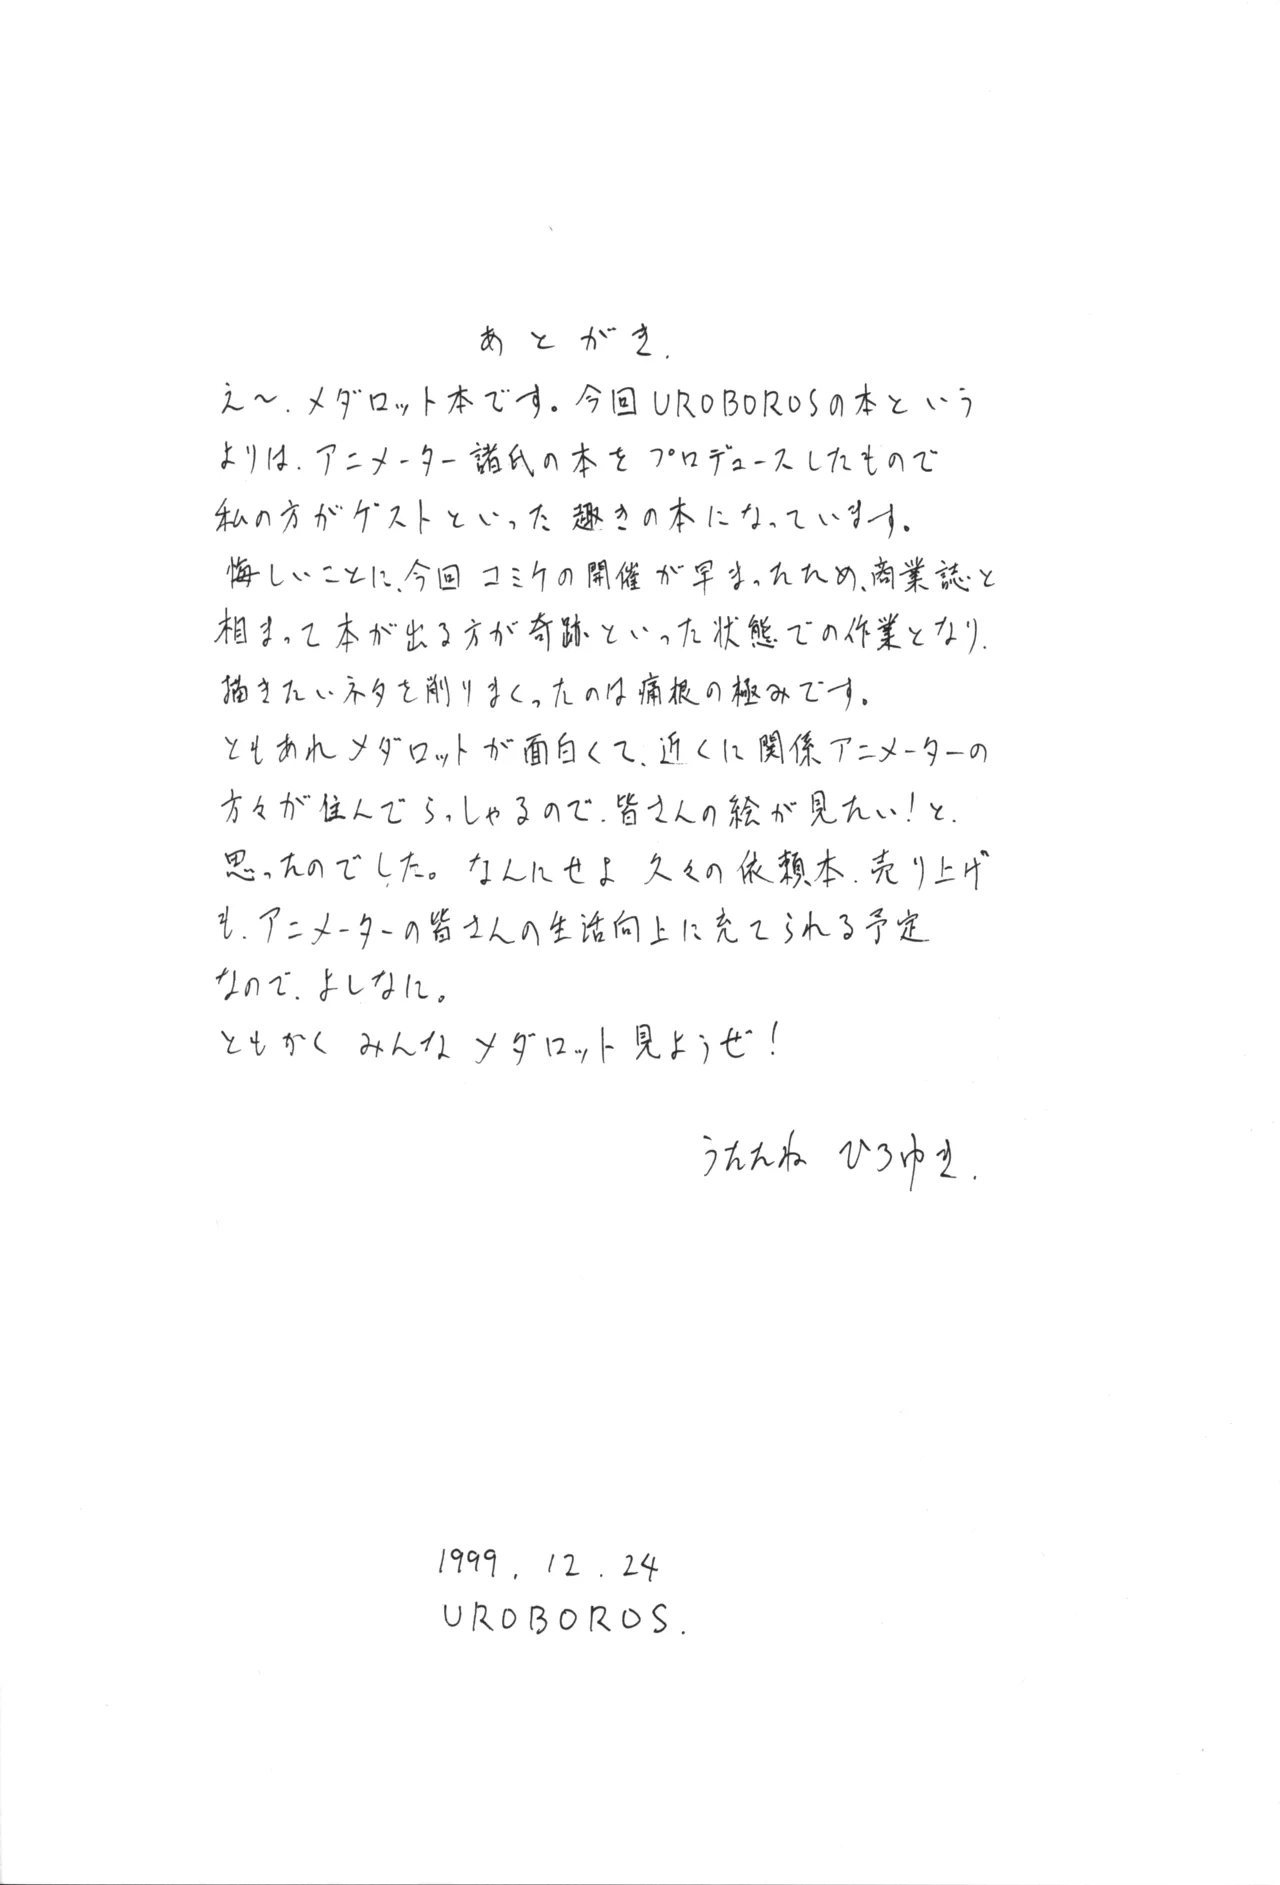 あとがき.
え〜、メダロット本です。今回UROBOROSの本という
よりは、アニメーター諸氏の本をプロデュースしたもので
私の方がゲストといった趣きの本になっています。
悔しいことに、今回コミケの開催が早まったため、商業誌と
相まって本が出る方が奇跡といった状態での作業となり、
描きたいネタを削りまくったのは痛根の極みです。
ともあれメダロットが面白くて、近くに関係アニメーターの
方々が住んでらっしゃるので、皆さんの絵が見たい!と、
思ったのでした。なんにせよ 久々の依頼本、売り上げ
も、アニメーターの皆さんの生活向上に充てられる予定
なので、よしなに。
ともかく みんな メダロット見ようぜ!
うたたね ひろゆき.
1999. 12. 24
UROBOROS.